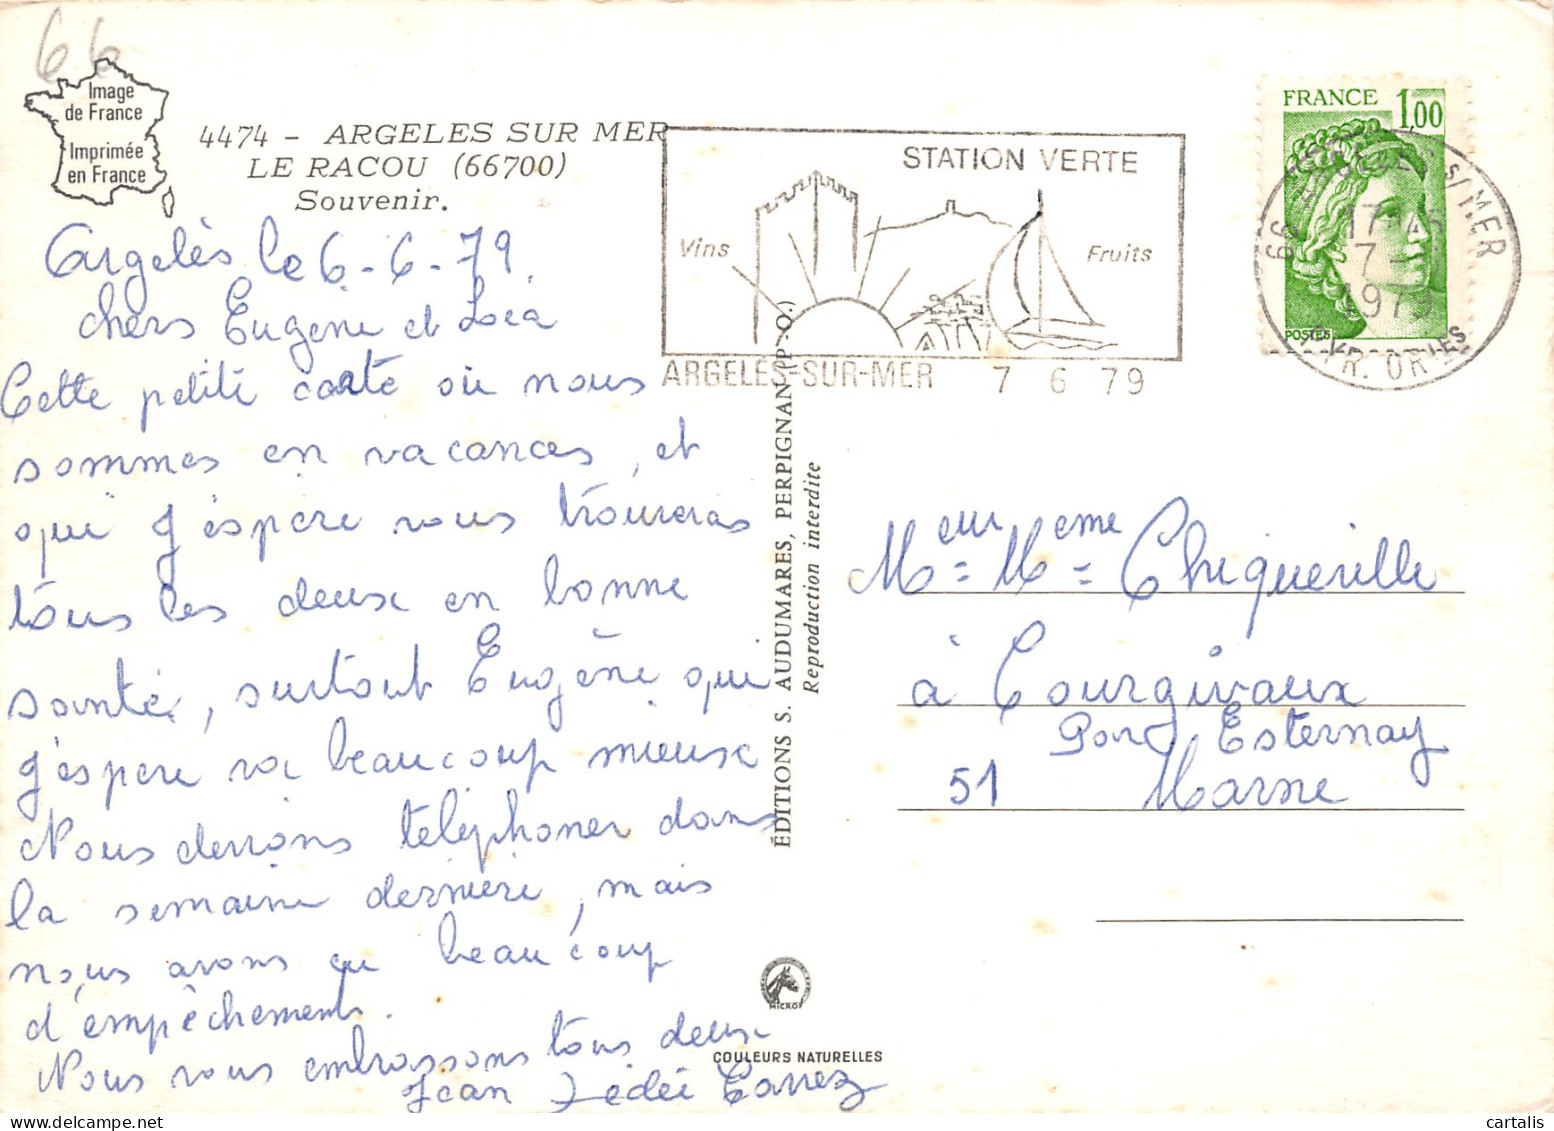 66
Image
de France
Imprimée
en France
4474 - ARGELES SUR MER
LE RACOU (66700)
Souvenir.
Argelès le 6-6-79.
chers Eugène et Léa
Cette petite carte où nous
sommes en vacances, et
qui j'éspère vous trouveras
tous les deux en bonne
santé, surtout Eugène qui
j'éspère va beaucoup mieux
Nous devrions téléphoner dans
la semaine dernière, mais
nous avons eu beaucoup
d'empêchements.
Nous vous embrassons tous deux
Jean
ÉDITIONS S. AUDUMARES, PERPIGNAN (P.-O.)
Reproduction interdite
MICRO
COULEURS NATURELLES
STATION VERTE
Vins
Fruits
ARGELÈS-SUR-MER 7 6 79
FRANCE 1,00
POSTES
66 ARGELÈS s/MER
17H45
7-6
1979
PYR. ORLES
Meur = Meme Chiquerille
à Courgivaux
Par Esternay
51 Marne
cartalis